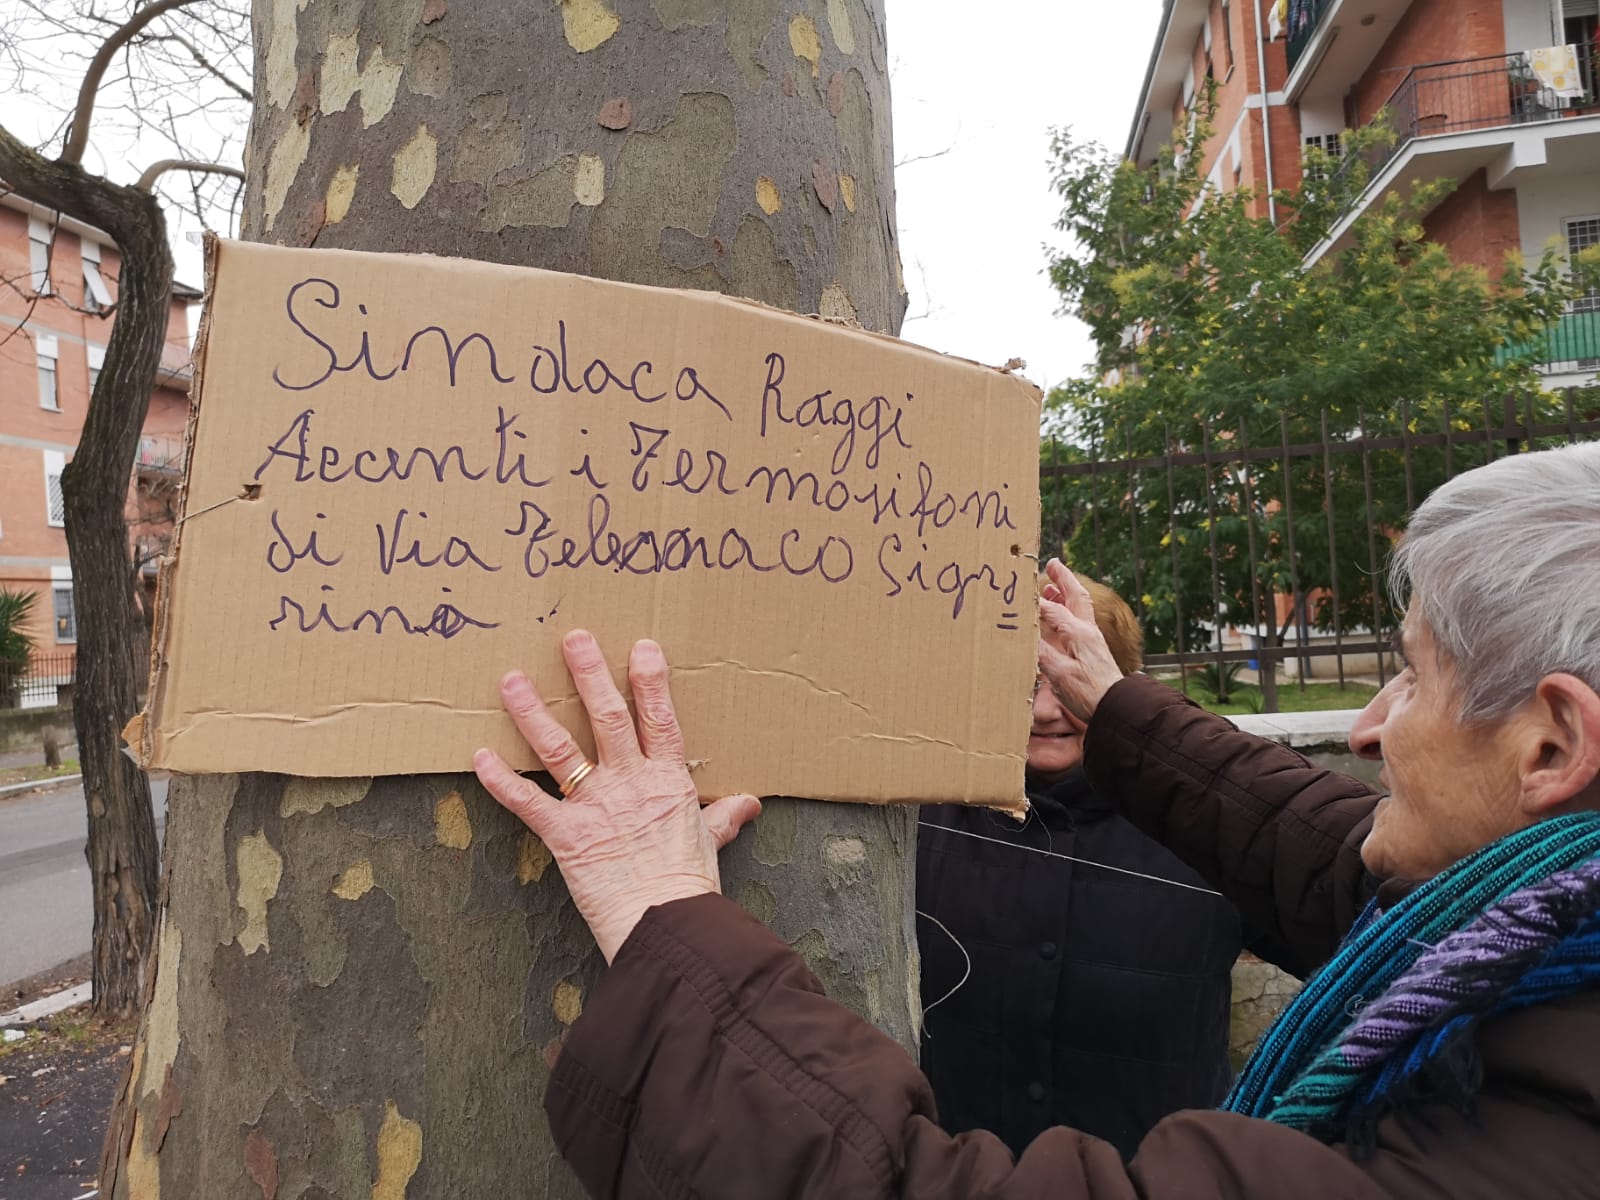 Sindaca Raggi
Accenti i Termosifoni
di via Telemaco Signo=
rini.